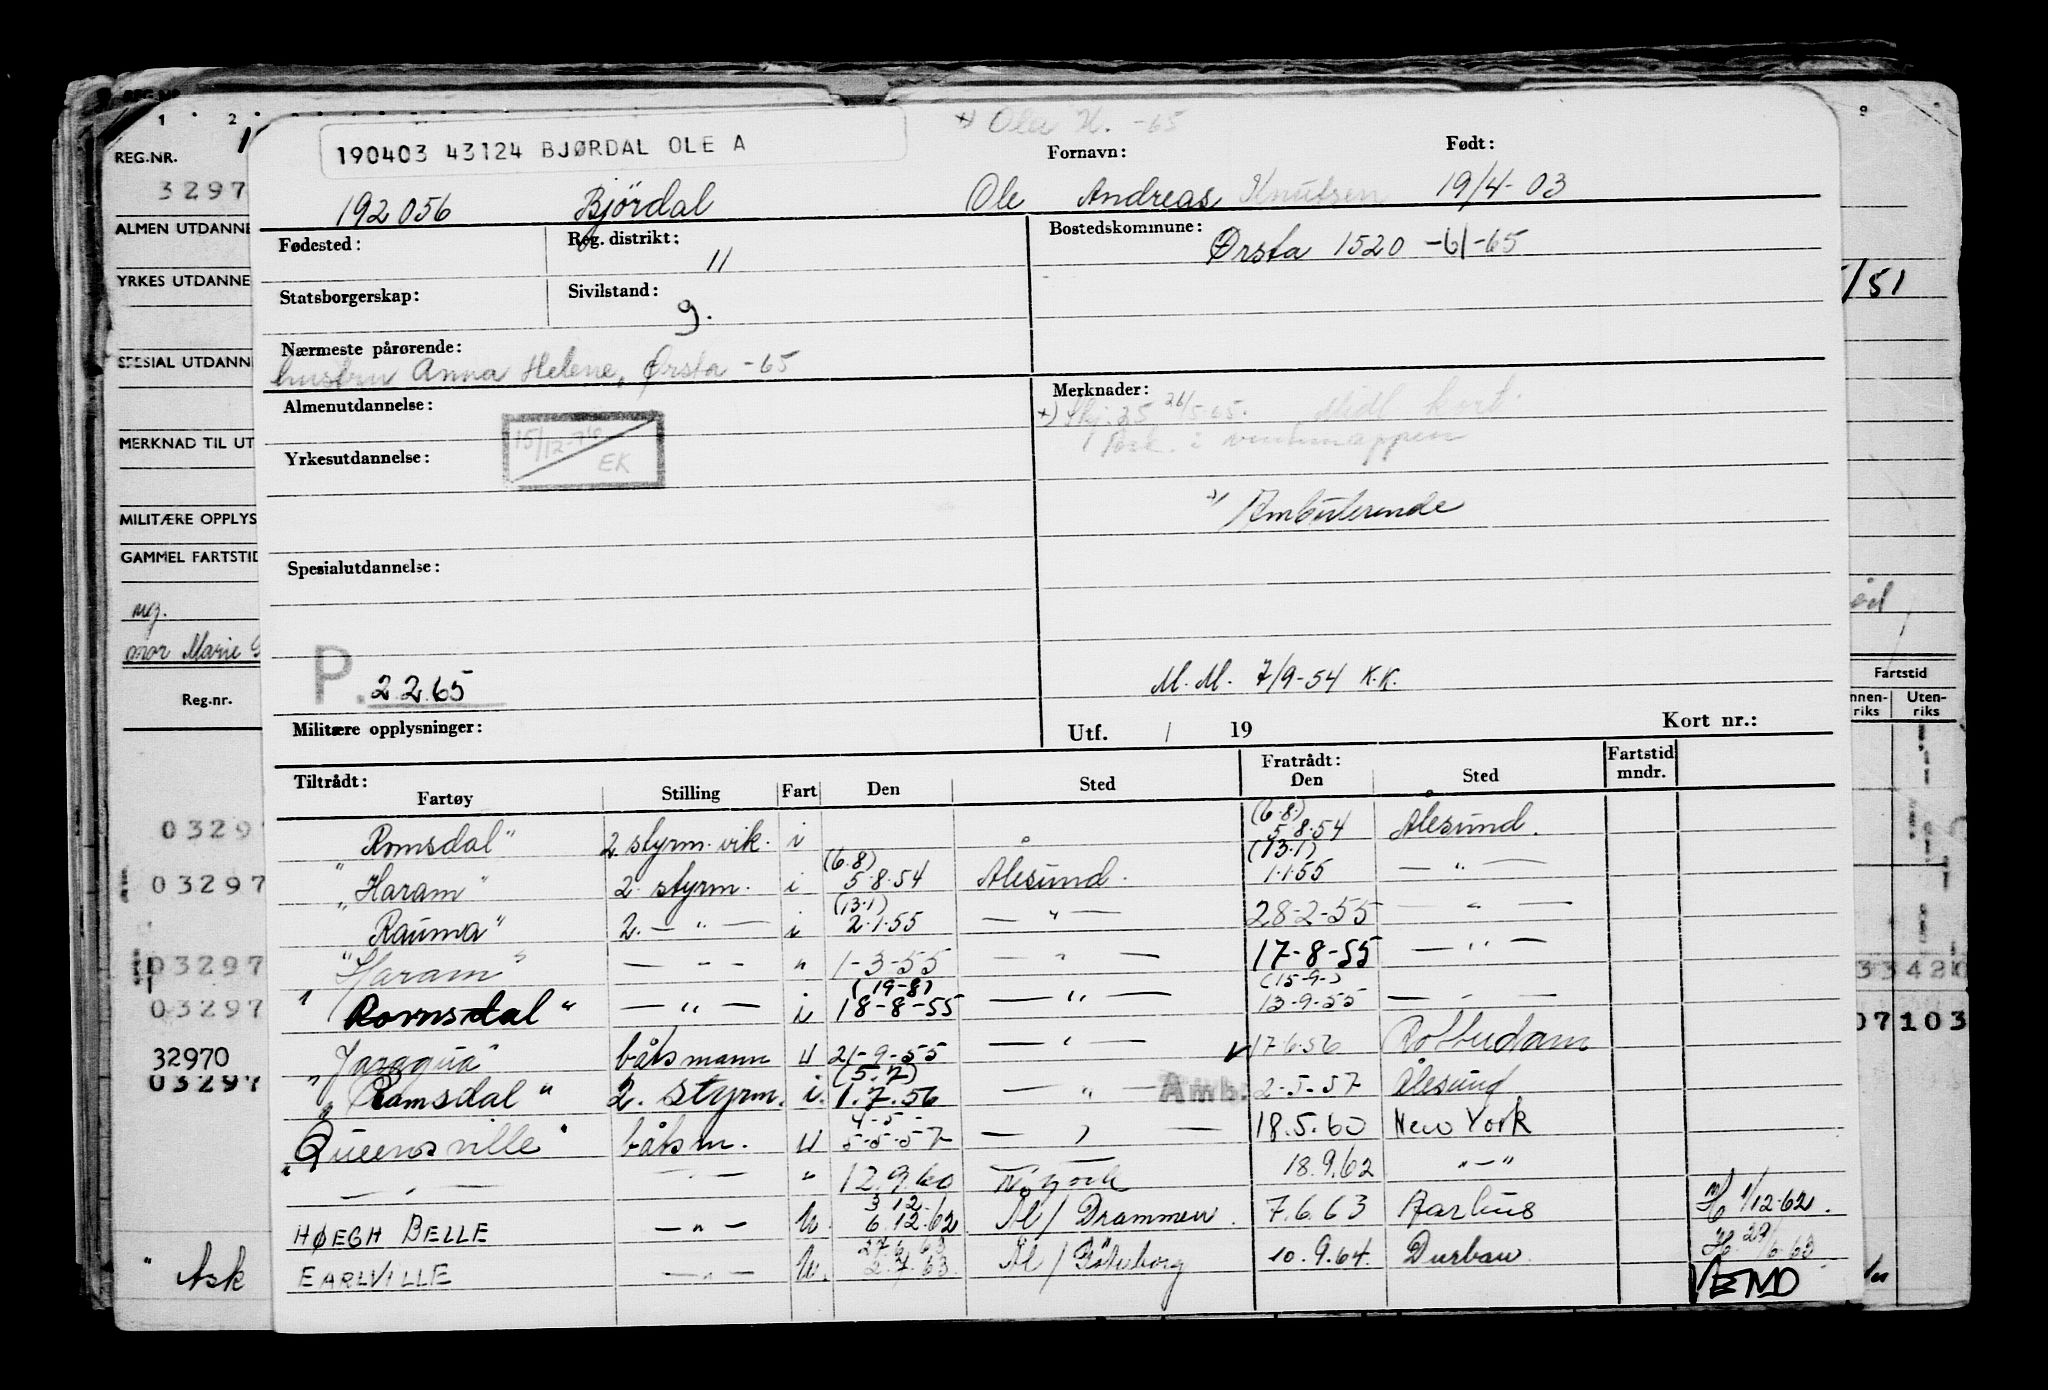 x) Ola K. -65
190403 43124 BJØRDAL OLE A
Fornavn: Født:
192056 Bjørdal Ole Andreas Knutsen 19/4-03
Fødested: Reg. distrikt: 11 Bostedskommune: Ørsta 1520 -61-65
Statsborgerskap: Sivilstand: g.
Nærmeste pårørende:
hustru Anna Helene, Ørsta -65
Almenutdannelse: Merknader:
15/12-76 EK
x) Skj. 25 26/5-65. Midl kort.
i
Yrkesutdannelse:
x) Ambulerende
Spesialutdannelse:
P. 2.2.65
M.M. 7/9-54 K.K.
Militære opplysninger: Utf. / 19 Kort nr.:
Tiltrådt: Fratrådt: Fartstid mndr.
Fartøy Stilling Fart Den Sted Den Sted
Romsdal" 2 styrm. vik. i (6.8.) 5.8.54 Ålesund.
"Haram" 2. styrm. i (6.8) 5.8.54 Ålesund. (13.1) 1.1.55 — " —
Rauma" 2. — " — i (13.1) 2.1.55 — " — 28-2-55 — " —
"Haram" — " — " 1-3-55 — " — 17-8-55 — " —
"Romsdal" — " — i (19-8) 18-8-55 — " — (15-9-) 13-9-55 — " —
"Jaragua" båtsmann u 21-9-55 — " — 17.6.56 Rotterdam
"Romsdal" 2. styrm. i. (5.7) 1.7.56 — " — Amb. 2-5-57 Ålesund
"Queensville" båtsm. u 4-5- 5-5-57 — " — 18.5.60 New York
— " — — " — " 12.9.60 N.York 18.9.62 " — "
HØEGH BELLE — " — u. 3.12. 6.12.62 Ål/Drammen. 7.6.63 Aarhus H 1/12-62.
EARLVILLE — " — u. 27.6.63 2.7.63. Ål/Göteborg 10.9.64. Durban. H. 29/6.63
VEND
1 2 9
REG.NR.
3297
ALMEN UTDANNE
YRKES UTDANNE
/51
SPESIAL UTDANN
MERKNAD TIL UT
MILITÆRE OPPLYS
GAMMEL FARTSTID
ug.
mor Marie
Reg.nr. Fartstid
nnen-riks Uten-riks
03297
03297
03297 33420
03297 07103
32970
03297
" Ask